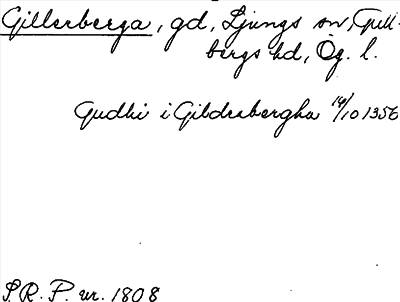 Gillerberga, gd, Ljungs sn, Gull-
bergs hd, Ög. l.
Gudhi i Gildrabergha 14/10 1356
S.R.P. nr. 1808